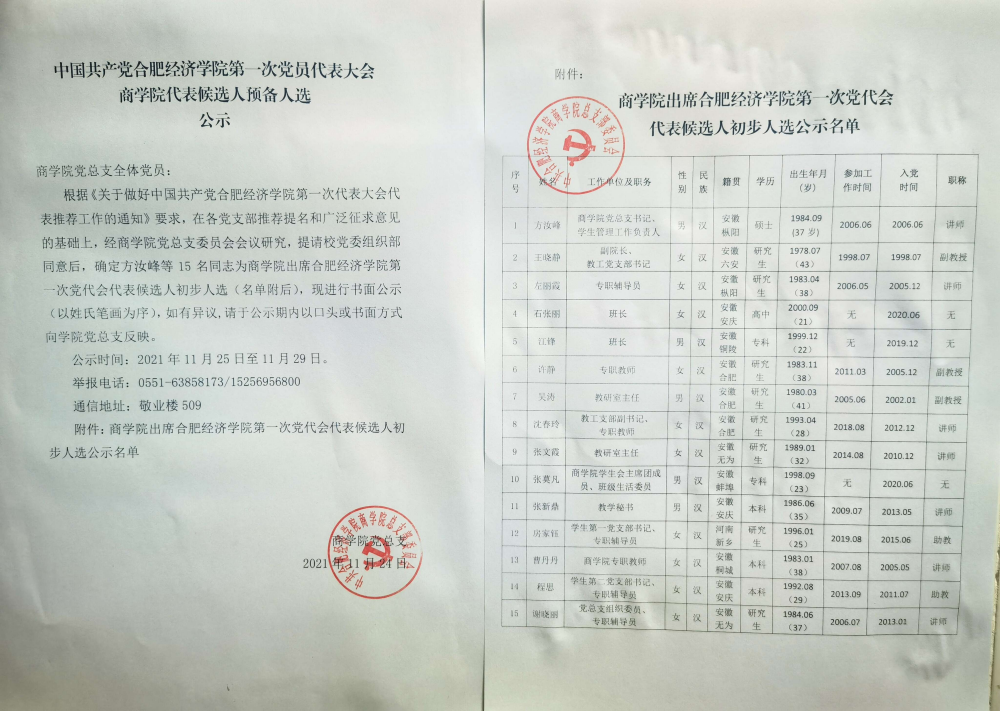 中国共产党合肥经济学院第一次党员代表大会
商学院代表候选人预备人选
公示
商学院党总支全体党员：
根据《关于做好中国共产党合肥经济学院第一次代表大会代
表推荐工作的通知》要求，在各党支部推荐提名和广泛征求意见
的基础上，经商学院党总支委员会会议研究，提请校党委组织部
同意后，确定方汝峰等 15 名同志为商学院出席合肥经济学院第
一次党代会代表候选人初步人选（名单附后），现进行书面公示
（以姓氏笔画为序），如有异议,请于公示期内以口头或书面方式
向学院党总支反映。
公示时间：2021 年 11 月 25 日至 11 月 29 日。
举报电话：0551-63858173/15256956800
通信地址：敬业楼 509
附件：商学院出席合肥经济学院第一次党代会代表候选人初
步人选公示名单
中共合肥经济学院商学院总支部委员会
商学院党总支
2021 年 11 月 24 日
附件：
商学院出席合肥经济学院第一次党代会
代表候选人初步人选公示名单
中共合肥经济学院商学院总支部委员会
序号 姓名 工作单位及职务 性别 民族 籍贯 学历 出生年月（岁） 参加工作时间 入党时间 职称
1 方汝峰 商学院党总支书记、学生管理工作负责人 男 汉 安徽枞阳 硕士 1984.09（37 岁） 2006.06 2006.06 讲师
2 王晓静 副院长、教工党支部书记 女 汉 安徽六安 研究生 1978.07（43） 1998.07 1998.07 副教授
3 左丽霞 专职辅导员 女 汉 安徽枞阳 研究生 1983.04（38） 2006.05 2005.12 讲师
4 石张丽 班长 女 汉 安徽安庆 高中 2000.09（21） 无 2020.06 无
5 江锋 班长 男 汉 安徽铜陵 专科 1999.12（22） 无 2019.12 无
6 许静 专职教师 女 汉 安徽合肥 研究生 1983.11（38） 2011.03 2005.12 副教授
7 吴涛 教研室主任 男 汉 安徽合肥 研究生 1980.03（41） 2005.06 2002.01 副教授
8 沈春玲 教工支部副书记、专职教师 女 汉 安徽合肥 研究生 1993.04（28） 2018.08 2012.12 讲师
9 张文霞 教研室主任 女 汉 安徽无为 研究生 1989.01（32） 2014.08 2010.12 讲师
10 张莫凡 商学院学生会主席团成员、班级生活委员 女 汉 安徽蚌埠 专科 1998.09（23） 无 2020.06 无
11 张新鼎 教学秘书 男 汉 安徽安庆 本科 1986.06（35） 2009.07 2013.05 讲师
12 房家钰 学生第一党支部书记、专职辅导员 女 汉 河南新乡 研究生 1996.01（25） 2019.08 2015.06 助教
13 曹丹丹 商学院专职教师 女 汉 安徽桐城 本科 1983.01（38） 2007.08 2005.05 讲师
14 程思 学生第二党支部书记、专职辅导员 女 汉 安徽安庆 本科 1992.08（29） 2013.09 2011.07 助教
15 谢晓丽 党总支组织委员、专职辅导员 女 汉 安徽无为 研究生 1984.06（37） 2006.07 2013.01 讲师